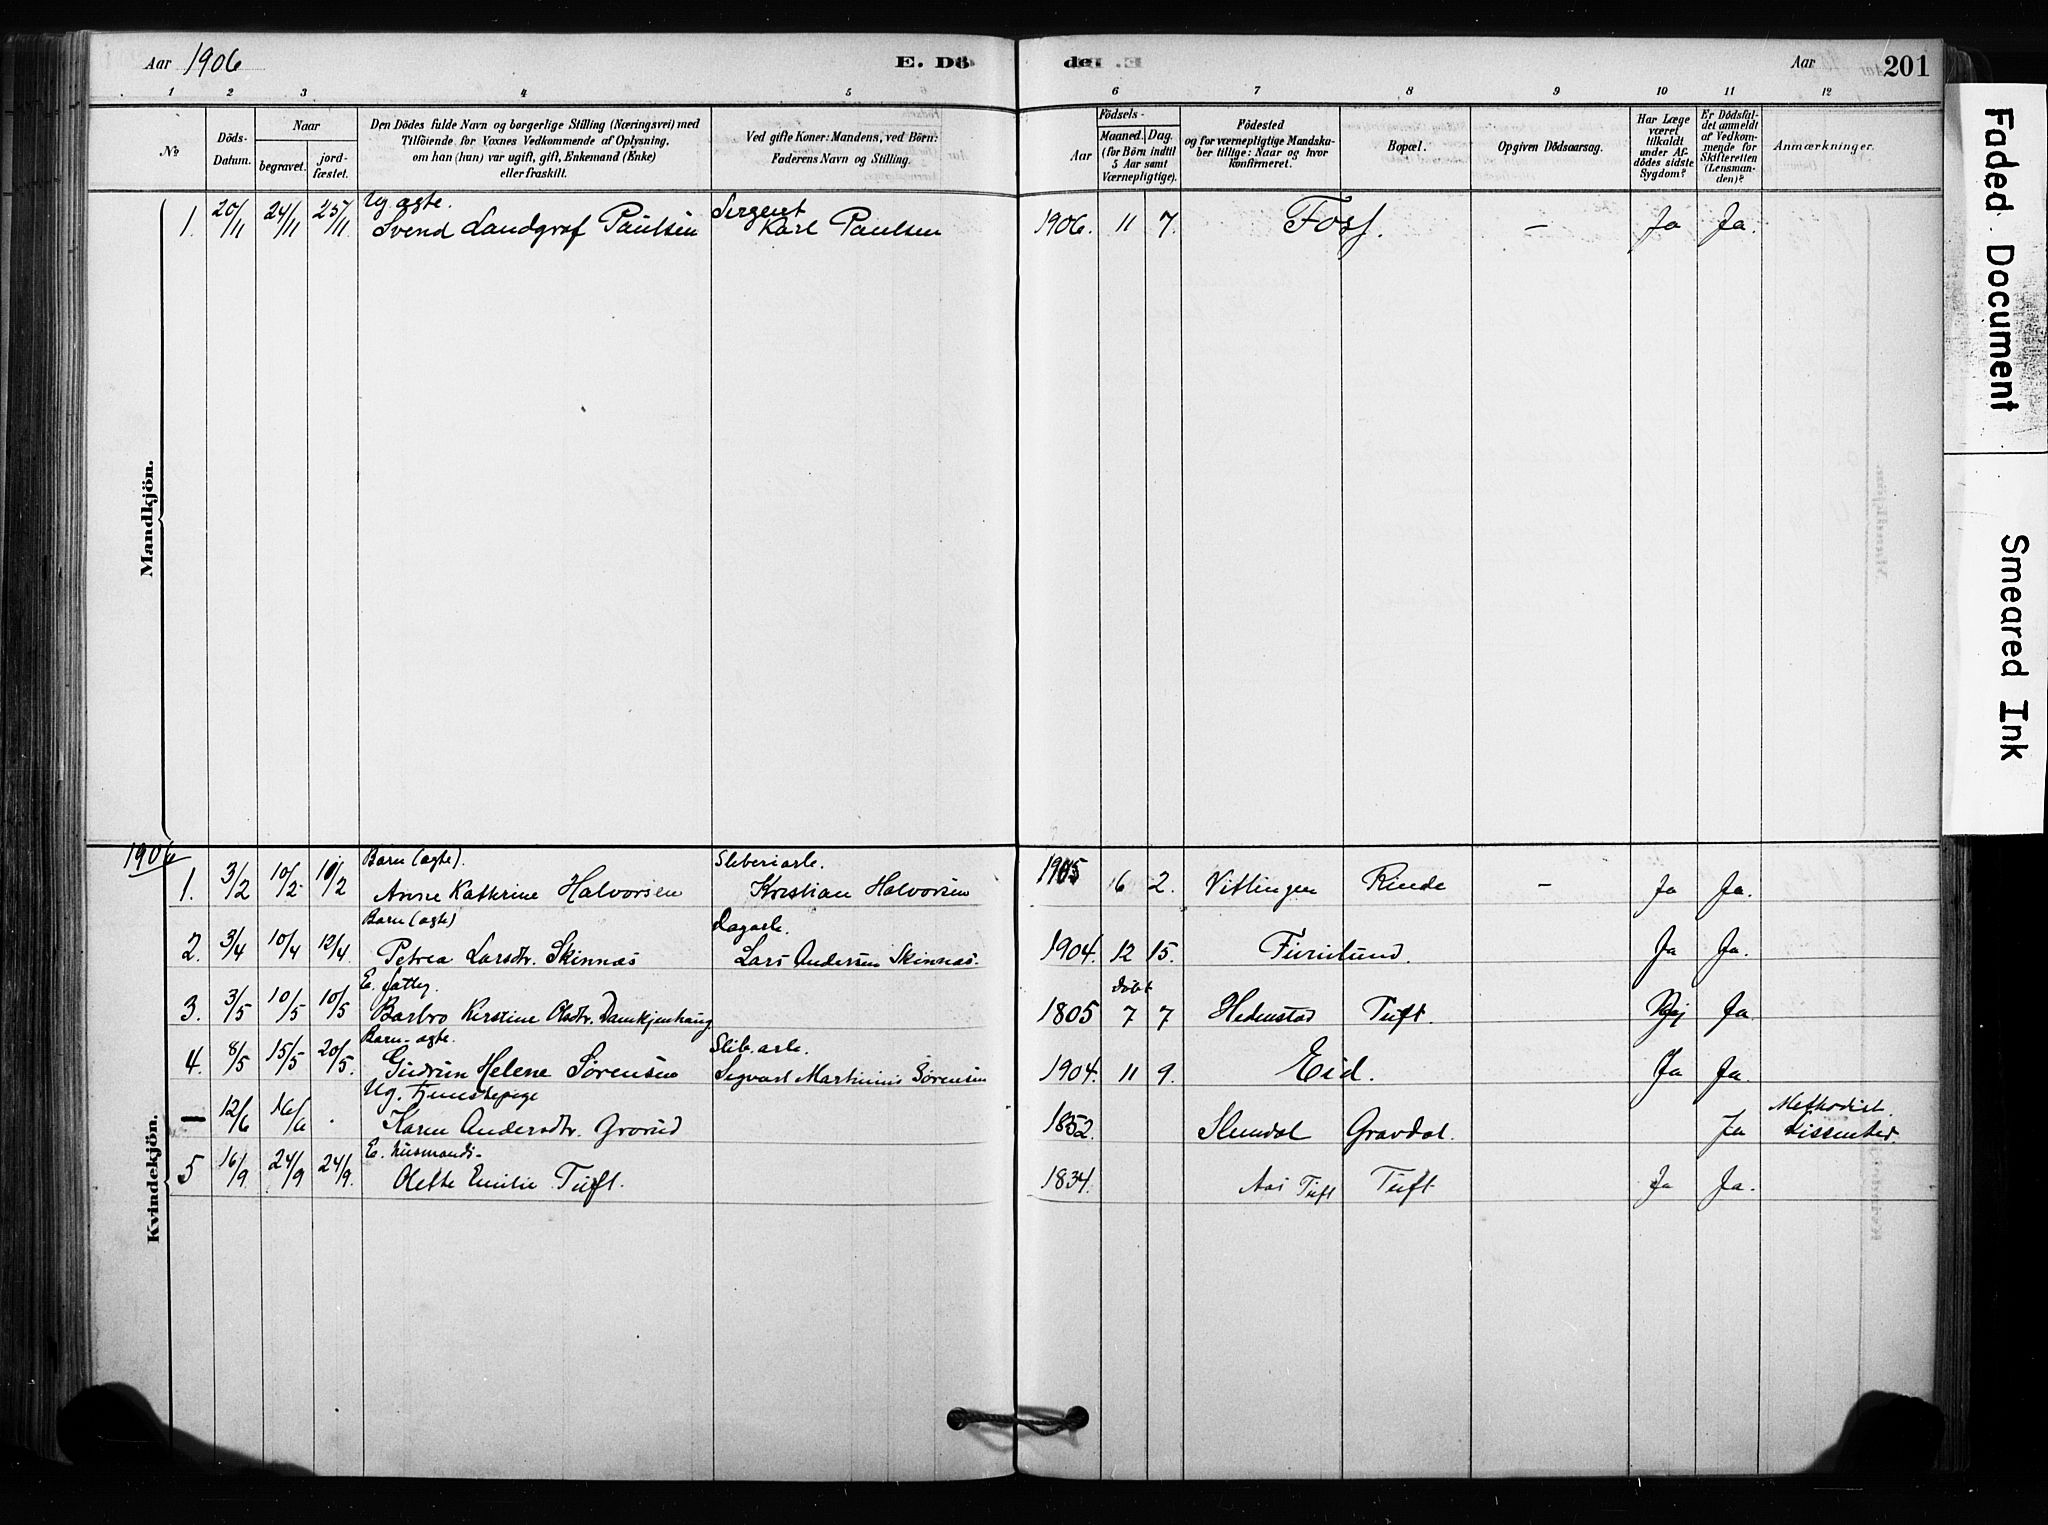 Aar 1906
E. Dö
de
Aar
201
1 2 3 4 5 6 7 8 9 10 11 12
No
Döds-Datum.
Naar
begravet. jord-fæstet.
Den Dödes fulde Navn og borgerlige Stilling (Næringsvei) med
Tilföiende for Voxnes Vedkommende af Oplysning,
om han (hun) var ugift, gift, Enkemand (Enke)
eller fraskilt.
Ved gifte Koner: Mandens, ved Börn:
Faderens Navn og Stilling.
Födsels-
Aar
Maaned. Dag.
(for Börn indtil
5 Aar samt
Værnepligtige).
Födested
og for værnepligtige Mandska-
ber tillige: Naar og hvor
konfirmeret.
Bopæl.
Opgiven Dödsaarsag.
Har Læge
været
tilkaldt
under Af-
dödes sidste
Sygdom?
Er Dödsfal-
det anmeldt
af Vedkom-
mende for
Skifteretten
(Lensman-
den)?
Anmærkninger.
Mandkjön.
Ug. ægte. Sergeant
1. 20/11 24/11 25/11 Svend Landgraf Paulsen Karl Paulsen 1906. 11 7. Foss. – Ja Ja.
1906
Kvindekjön.
Barn (ægte). Sliberiarb.
1. 3/2 10/2 10/2 Anne Kathrine Halvorsen Kristian Halvorsen 1905 6 2. Vittingen Rinde – Ja Ja.
Barn (ægte) Dagarb.
2. 3/4 10/4 12/4. Petrea Larsdtr. Skinnæs Lars Andersen Skinnæs. 1904. 12 15. Furulund. Ja Ja.
E. fattig. döbt
3. 3/5 10/5 10/5 Barbro Kirstine Olsdtr. Damkjenhaug 1805 7 7 Hedenstad Tuft. Nej Ja.
Barn- ægte. Slib. arb.
4. 8/5 15/5 20/5. Gudrun Helene Sørensen Sigvart Martinius Sørensen 1904. 11 9. Eid. Ja Ja.
Ug. Tjenestepige Methodist.
– 12/6 16/6 . Karen Andersdtr. Grorud 1852. Slemdal Gravdal. Ja dissenter
E. husmands-
5 16/9. 24/9 24/9. Olette Emilie Tuft. 1834. Aas Tuft Tuft Ja Ja.
Faded Document
Smeared Ink